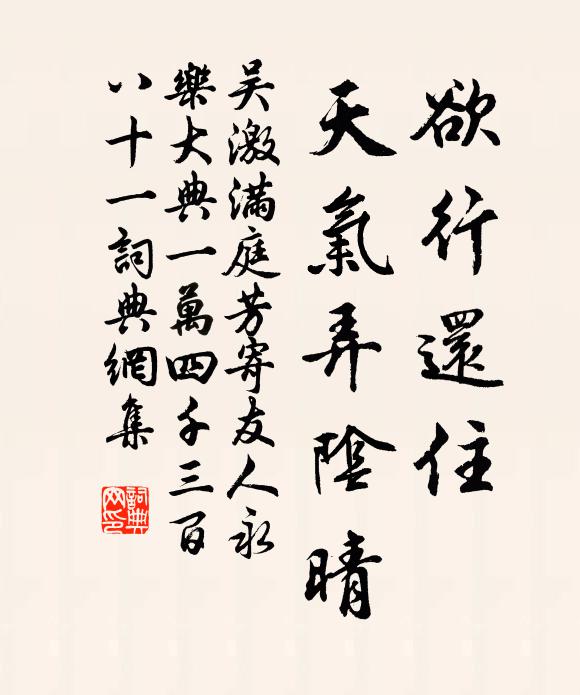 欲行還住
天氣弄陰晴
吳激滿庭芳寄友人永
樂大典一萬四千三百
八十一詞典網集
詞典
网印